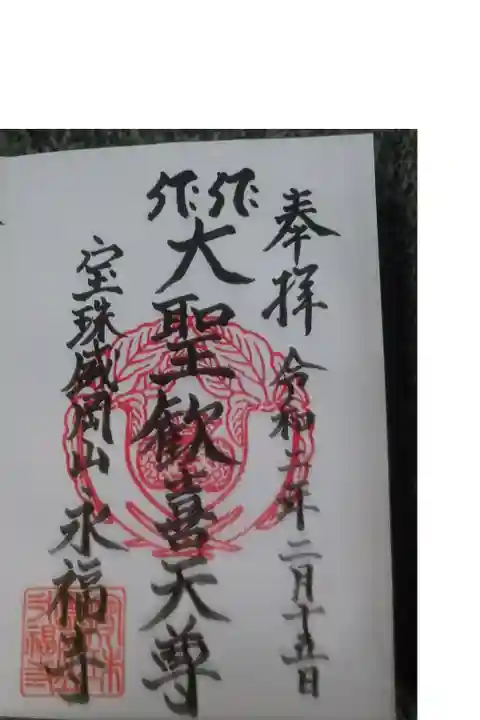 奉拝 令和二年二月十五日
大聖歓喜天尊
宝珠盛岡山 永福寺